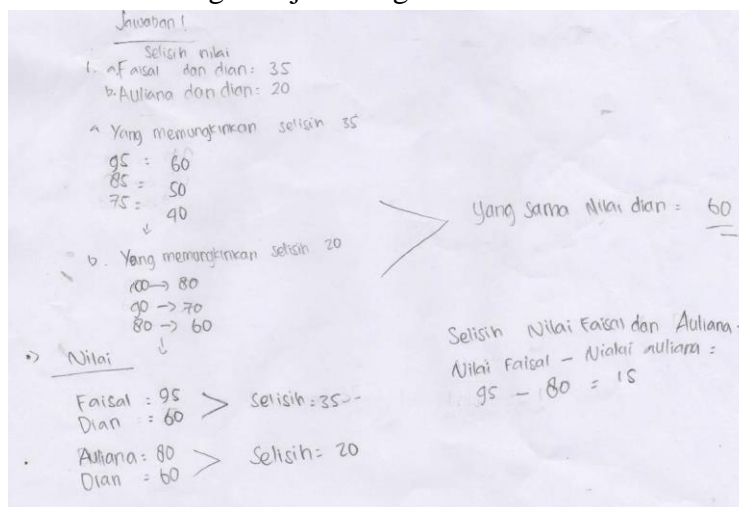 Jawaban 1
Selisih nilai
1. a. Faisal dan dian: 35
b. Auliana dan dian: 20
a Yang memungkinkan selisih 35
95 = 60
85 = 50
75 = 40
b. Yang memungkinkan selisih 20
100 → 80
90 → 70
80 → 60
Yang sama Nilai dian = 60
Nilai
Faisal : 95
Dian : 60
> Selisih : 35
Auliana = 80
Dian = 60
> Selisih = 20
Selisih Nilai Faisal dan Auliana.
Nilai Faisal - Nialai auliana =
95 - 80 = 15